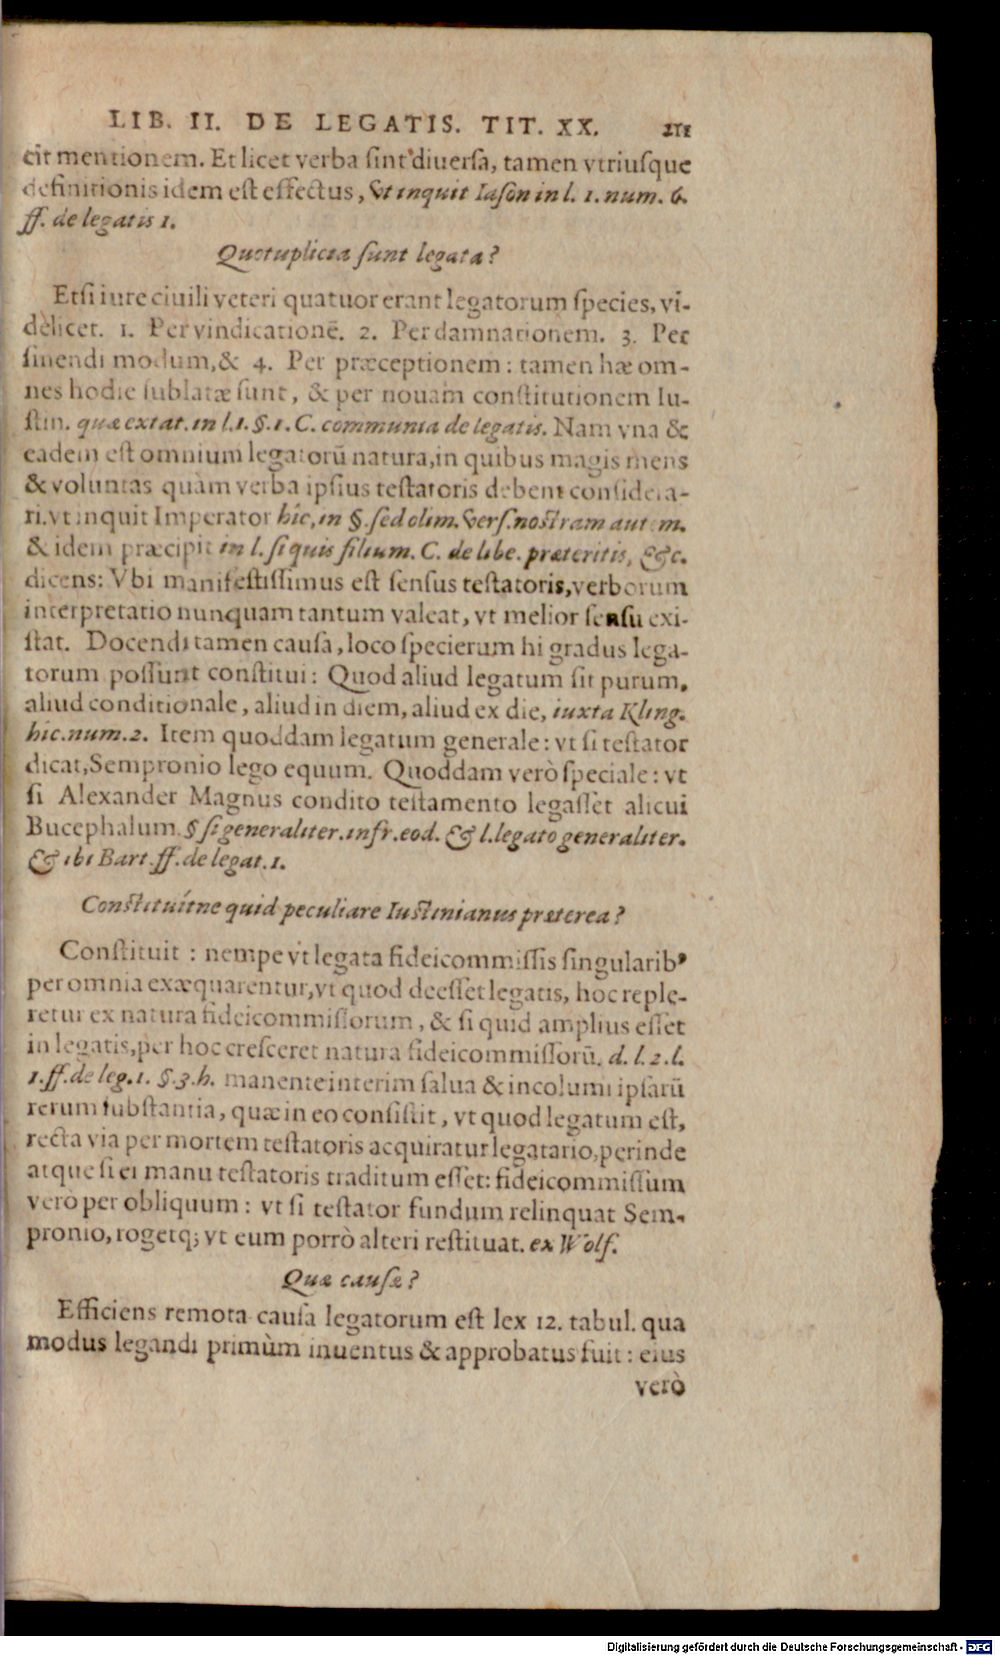 LIB. II. DE LEGATIS. TIT. XX. 211
cit mentionem. Et licet verba sint diuersa, tamen vtriusque
definitionis idem est effectus, vt inquit Iason in l. 1. num. 6.
ff. de legatis 1.
Quotuplicia sunt legata?
Etsi iure ciuili veteri quatuor erant legatorum species, vi-
delicet. 1. Per vindicationē. 2. Per damnationem. 3. Per
sinendi modum, & 4. Per præceptionem: tamen hæ om-
nes hodie sublatæ sunt, & per nouam constitutionem Iu-
stin. quæ extat. in l. 1. §. 1. C. communia de legatis. Nam vna &
eadem est omnium legatorū natura, in quibus magis mens
& voluntas quàm verba ipsius testatoris debent considera-
ri. vt inquit Imperator hîc, in §. sed olim. vers. nostram autem.
& idem præcipit in l. si quis filium. C. de libe. præteritis, &c.
dicens: Vbi manifestissimus est sensus testatoris, verborum
interpretatio nunquam tantum valeat, vt melior sensu exi-
stat. Docendi tamen causa, loco specierum hi gradus lega-
torum possunt constitui: Quod aliud legatum sit purum,
aliud conditionale, aliud in diem, aliud ex die, iuxta Kling.
hîc. num. 2. Item quoddam legatum generale: vt si testator
dicat, Sempronio lego equum. Quoddam verò speciale: vt
si Alexander Magnus condito testamento legasset alicui
Bucephalum. § si generaliter. infr. eod. & l. legato generaliter.
& ibi Bart. ff. de legat. 1.
Constituítne quid peculiare Iustinianus præterea?
Constituit: nempe vt legata fideicommissis singularib⁹
per omnia exæquarentur, vt quod deesset legatis, hoc reple-
retur ex natura fideicommissorum, & si quid amplius esset
in legatis, per hoc cresceret natura fideicommissorū. d. l. 2. l.
1. ff. de leg. 1. §. 3. h. manente interim salua & incolumi ipsarū
rerum substantia, quæ in eo consistit, vt quod legatum est,
recta via per mortem testatoris acquiratur legatario, perinde
atque si ei manu testatoris traditum esset: fideicommissum
verò per obliquum: vt si testator fundum relinquat Sem-
pronio, rogetq; vt eum porrò alteri restituat. ex Wolf.
Quæ causæ?
Efficiens remota causa legatorum est lex 12. tabul. qua
modus legandi primùm inuentus & approbatus fuit: eius
verò
Digitalisierung gefördert durch die Deutsche Forschungsgemeinschaft - DFG